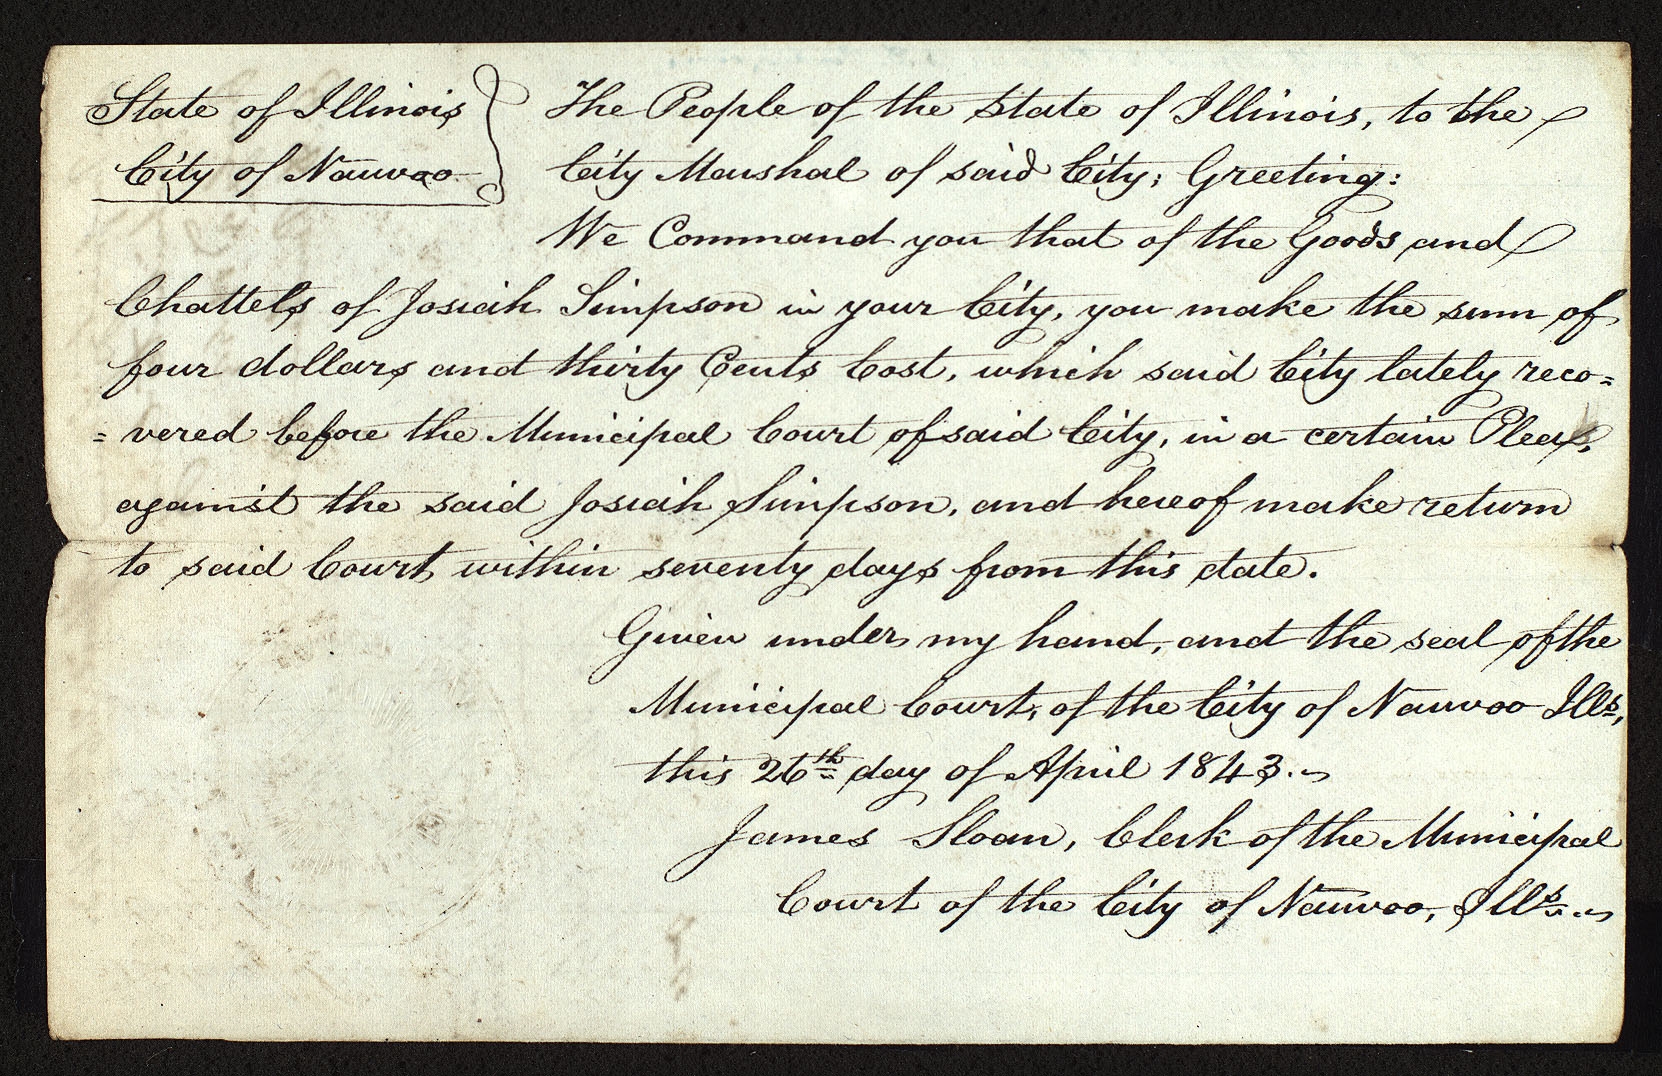 State of Illinois } The People of the State of Illinois, to the
City of Nauvoo } City Marshal of said City; Greeting:
We Command you that of the Goods and
Chattels of Josiah Simpson in your City, you make the sum of
four dollars and thirty Cents Cost, which said City lately reco=
=vered before the Municipal Court of said City, in a certain Plea,
against the said Josiah Simpson, and hereof make return
to said Court within seventy days from this date.
Given under my hand, and the seal of the
Municipal Court, of the City of Nauvoo Ills,
this 26th day of April 1843.
James Sloan, Clerk of the Municipal
Court of the City of Nauvoo, Ills.